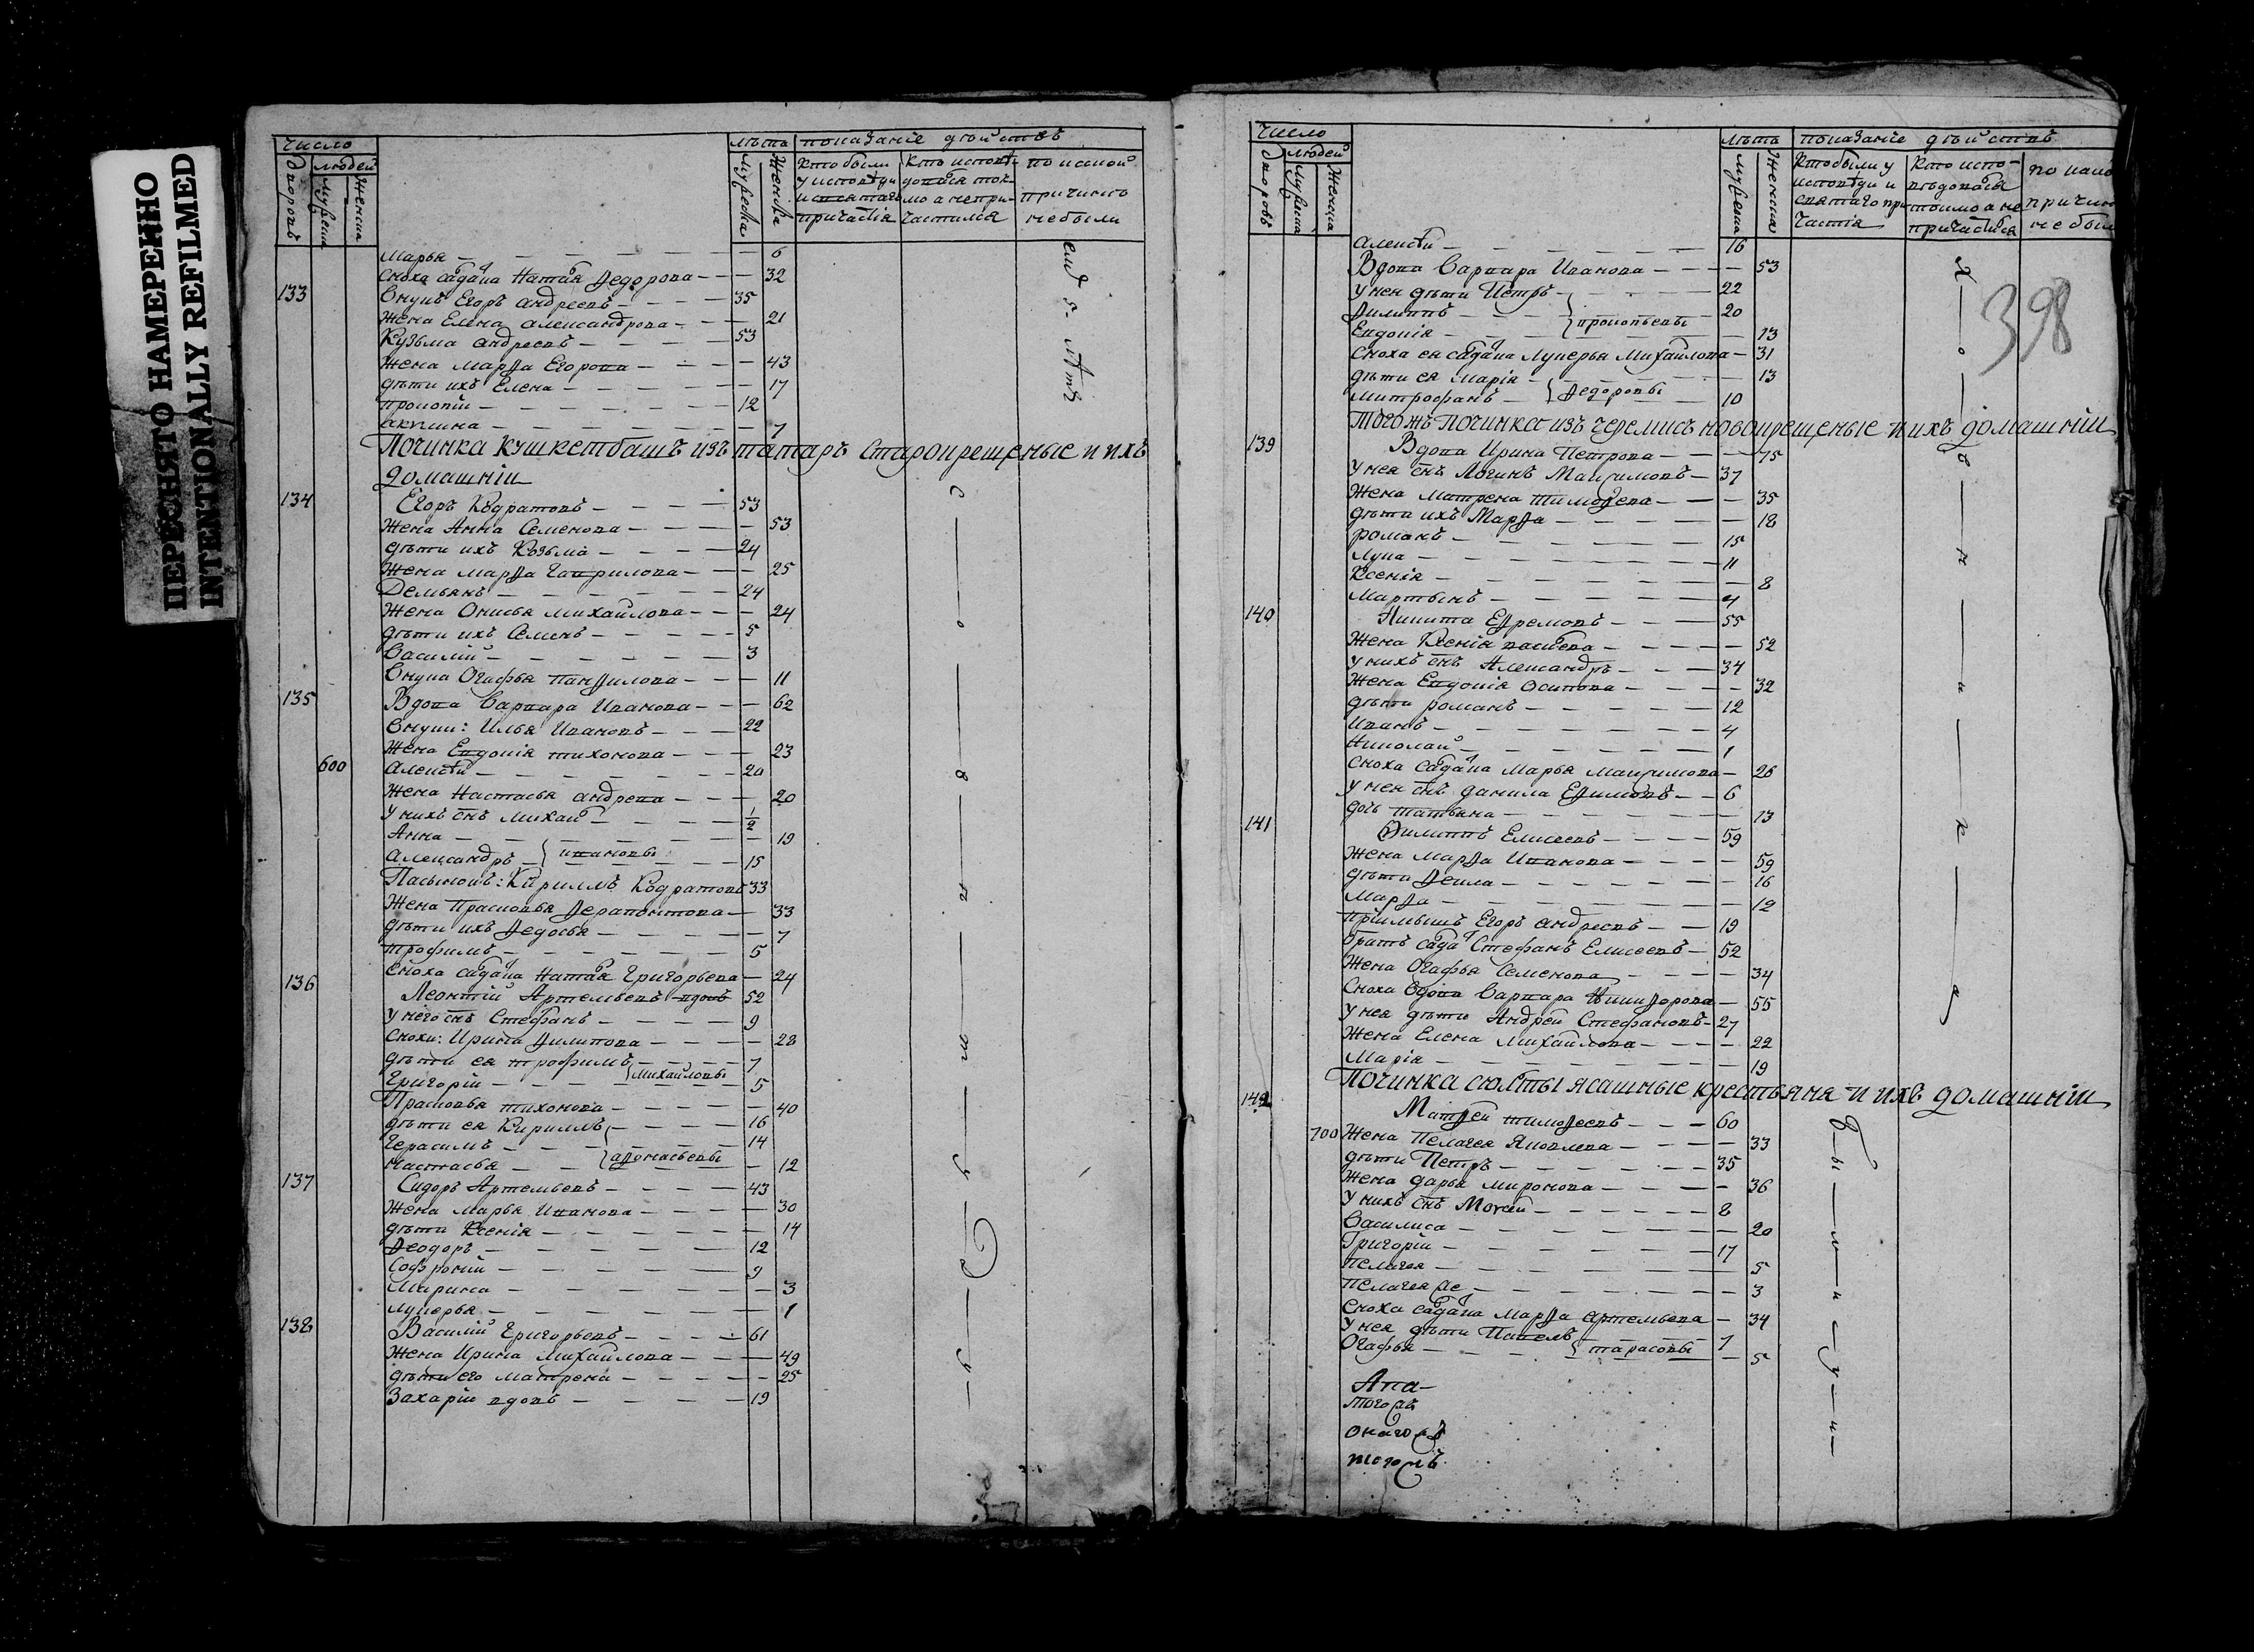 ПЕРЕСНЯТО НАМЕРЕННО
INTENTIONALLY REFILMED
число
дворовъ
людей
мужеска
женска
лѣта
мужеска
женска
показаніе дѣйствъ
кто были у исповѣди и святаго причастія
кто исповѣдовася токмо а непричастился
по какой причинѣ не были
Марья — 6
сноха вдова Наталя Ѳедорова — 32
133 внукъ Егоръ андреевъ — 35
Жена Елена александрова — 21
Кузьма андреевъ — 53
Жена марѳа Егорова — 43
дѣти ихъ Елена — 17
прокопій — 12
акулина — 7
Починка кушкетбашъ изъ татаръ старокрещеные и ихъ
домашніи
134 Егоръ Кодратовъ — 53
Жена Анна Семенова — 53
дѣти ихъ Козьма — 24
Жена марѳа Гаврилова — 25
Демьянъ — 24
Жена Онисья михайлова — 24
дѣти ихъ Семенъ — 5
Василій — 3
внука Огафья панѳилова — 11
135 Вдова Варвара Иванова — 62
внуки: Илья Ивановъ — 22
Жена Евдокія тихонова — 23
600 алексѣй — 20
Жена Настасья андреева — 20
у нихъ снъ михаи — 1/2
Анна — 19
александръ — ивановы 15
Пасынокъ: Кирилъ Кодратовъ 33
Жена Прасковья Ѳерапонтова — 33
дѣти ихъ Ѳедосья — 7
трофимъ — 5
сноха вдова Наталя Григорьева — 24
136 Леонтій Артемьевъ вдовъ 52
у него снъ Стефанъ — 9
снохи: Ирина Ѳилипова — 28
дѣти ея трофимъ — 7
Григорій — михайловы 5
Прасковья тихонова — 40
дѣти ея Кирилъ — 16
Герасимъ — 14
настасья — аѳонасьевы 12
137 Сидоръ Артемьевъ — 43
Жена марья Иванова — 30
дѣти Ксенія — 14
Ѳеодоръ — 12
Софроній — 9
Марина — 3
лукерья — 1
138 Василій Григорьевъ — 61
Жена Ирина михайлова — 49
дѣти его матрена — 25
Захарій вдовъ — 19
число
дворовъ
людей
мужеска
женска
лѣта
мужеска
женска
показаніе дѣйствъ
кто были у исповѣди и святаго причастія
кто исповѣдовася токмо а не причастися
по како
причин
не были
398
алексѣй — 16
Вдова Варвара Иванова — 53
у нея дѣти Петръ — 22
Ѳилиппъ — 20
Евдокія — прокопьевы 13
сноха ея вдова лукерья михайлова — 31
дѣти ея марія — 13
митрофанъ — Ѳедоровы 10
тогожъ починка изъ черемисъ новокрещеные и ихъ домашніи
139 Вдова Ирина Петрова — 75
у нея снъ Логинъ Максимовъ — 37
Жена матрена тимоѳеева — 35
дѣти ихъ Марѳа — 18
романъ — 15
лука — 11
Ксенія — 8
мартынъ — 4
140 Никита Еѳремовъ — 55
Жена Ксенія — 52
у нихъ снъ Александръ — 34
Жена Евдокія осипова — 32
дѣти романъ — 12
иванъ — 4
николай — 1
сноха вдова марья максимова — 26
у нея снъ данила — 6
дочь татьяна — 13
141 Ѳилиппъ Елисеевъ — 59
Жена марѳа Иванова — 59
дѣти Ѳекла — 16
марѳа — 12
пріимышъ Егоръ андреевъ — 19
братъ Стефанъ Елисеевъ — 52
Жена Огафья Семенова — 34
сноха вдова Варвара Никиѳорова — 55
у нея дѣти Андрей Стефановъ — 27
Жена Елена михайлова — 22
Марія — 19
Починка ясашные крестьяня и ихъ домашніи
142 Матѳей тимоѳеевъ — 60
700 Жена Пелагея Яковлева — 33
дѣти Петръ — 35
Жена дарья миронова — 36
у нихъ снъ Моѵсей — 8
Василиса — 20
Григорій — 17
пелагея — 5
пелагея же — 3
сноха вдова марѳа артемьева — 34
у нея дѣти Павелъ — 7
Огафья — тарасовы 5
Ана—
тогожъ
онагожъ
тогожъ